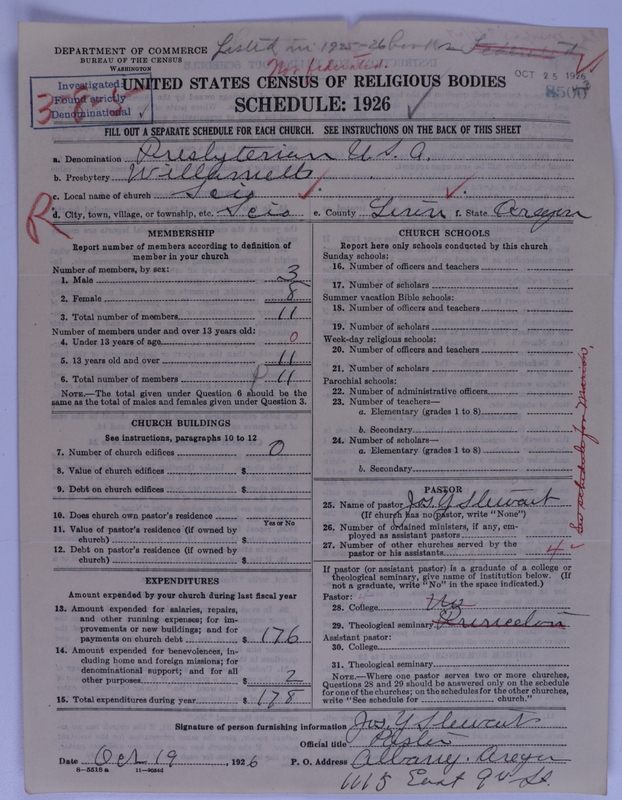 Listed in 1925-26 books
DEPARTMENT OF COMMERCE
BUREAU OF THE CENSUS
WASHINGTON
Not federated.
OCT 25 1926
Investigated:
Found strictly
Denominational
3-8-8
UNITED STATES CENSUS OF RELIGIOUS BODIES
SCHEDULE: 1926
FILL OUT A SEPARATE SCHEDULE FOR EACH CHURCH. SEE INSTRUCTIONS ON THE BACK OF THIS SHEET
a. Denomination Presbyterian U.S.A.
b. Presbytery Willamette
c. Local name of church Scio
R
d. City, town, village, or township, etc. Scio e. County Linn f. State Oregon
MEMBERSHIP
Report number of members according to definition of
member in your church
Number of members, by sex:
1. Male 3
2. Female 8
3. Total number of members 11
Number of members under and over 13 years old:
4. Under 13 years of age 0
5. 13 years old and over 11
6. Total number of members 11
NOTE.—The total given under Question 6 should be
same as the total of males and females given under Question 3.
CHURCH BUILDINGS
See instructions, paragraphs 10 to 12
7. Number of church edifices 0
8. Value of church edifices $
9. Debt on church edifices $
10. Does church own pastor's residence
Yes or No
11. Value of pastor's residence (if owned by
church) $
12. Debt on pastor's residence (if owned by
church) $
EXPENDITURES
Amount expended by your church during last fiscal year
13. Amount expended for salaries, repairs,
and other running expenses; for im-
provements or new buildings; and for
payments on church debt $ 176
14. Amount expended for benevolences, in-
cluding home and foreign missions; for
denominational support; and for all
other purposes $ 2
15. Total expenditures during year $ 178
CHURCH SCHOOLS
Report here only schools conducted by this church
Sunday schools:
16. Number of officers and teachers
17. Number of scholars
Summer vacation Bible schools:
18. Number of officers and teachers
19. Number of scholars
Week-day religious schools:
20. Number of officers and teachers
21. Number of scholars
Parochial schools:
22. Number of administrative officers
23. Number of teachers—
a. Elementary (grades 1 to 8)
b. Secondary
24. Number of scholars—
a. Elementary (grades 1 to 8)
b. Secondary
PASTOR
25. Name of pastor Jos. Y Stewart
(If church has no pastor, write "None")
26. Number of ordained ministers, if any, em-
ployed as assistant pastors
27. Number of other churches served by the
pastor or his assistants 4
See schedule for
If pastor (or assistant pastor) is a graduate of a college or
theological seminary, give name of institution below. (If
not a graduate, write "No" in the space indicated.)
Pastor:
28. College No
29. Theological seminary Princeton
Assistant pastor:
30. College
31. Theological seminary
NOTE.—Where one pastor serves two or more churches,
Questions 28 and 29 should be answered only on the schedule
for one of the churches; on the schedules for the other churches,
write "See schedule for church."
Signature of person furnishing information Jos. Y Stewart
Official title Pastor
Date Oct 19, 1926 P. O. Address Albany. Oregon
8-5518 a 11-9084d
1115 East 9th St.